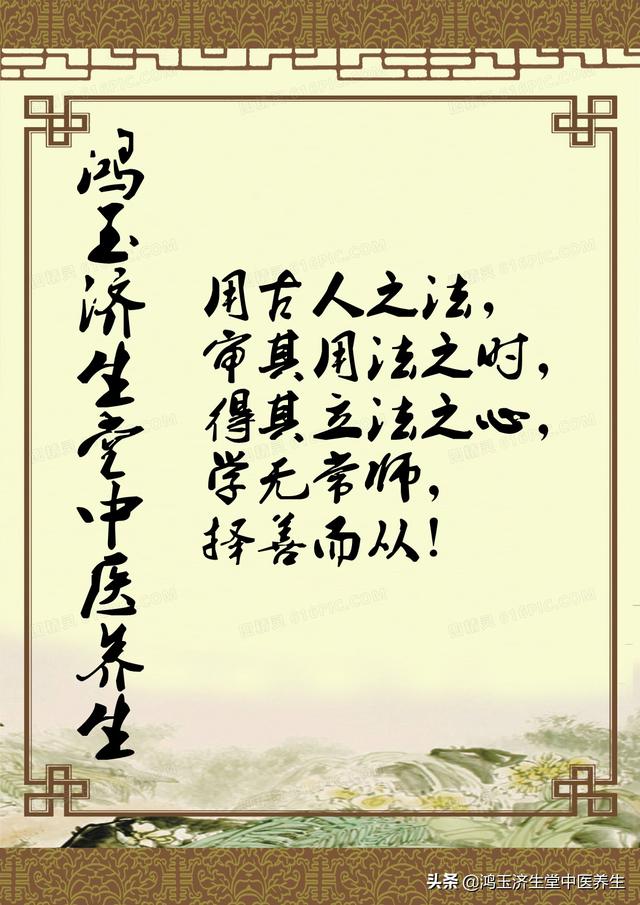 鸿玉济生堂中医养生
用古人之法，
审其用法之时，
得其立法之心，
学无常师，
择善而从！
头条 @鸿玉济生堂中医养生